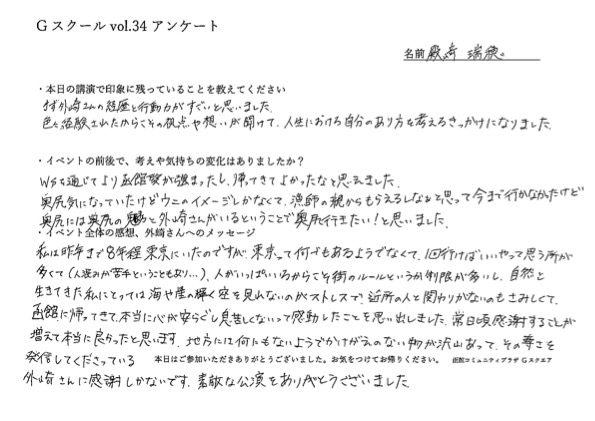 Gスクール vol.34 アンケート
名前 殿﨑 瑞穂。
・本日の講演で印象に残っていることを教えてください
まず外崎さんの経歴と行動力がすごいと思いました。
色々経験されたからこその視点や想いが聞けて、人生における自分のあり方を考えるきっかけになりました。
・イベントの前後で、考えや気持ちの変化はありましたか？
WSを通じてより函館愛が強まったし、帰ってきてよかったなと思えました。
奥尻気になっていたけどウニのイメージしかなくて、漁師の親からもらえるしなぁと思って今まで行かなかったけど
奥尻には奥尻の魅力と外崎さんがいるということで奥尻行きたい！と思いました。
・イベント全体の感想、外崎さんへのメッセージ
私は昨年まで8年程東京にいたのですが、東京って何でもあるようでなくて、1回行けばいいやって思う所が
多くて(人混みが苦手ということもあり…)、人がいっぱいいるからこそ街のルールというか制限が多いし、自然と
生きてきた私にとっては海や星の輝く空を見れないのがストレスで、近所の人と関わりがないのもさみしくて、
函館に帰ってきて、本当に心が安らぐし息苦しくないって感動したことを思い出しました。常日頃感謝することが
増えて本当に良かったと思います。地方には何にもないようでかけがえのない物が沢山あって、その尊さを
発信してくださっている
本日はご参加いただきありがとうございました。お気をつけてお帰りください。 函館コミュニティプラザ Gスクエア
外崎さんに感謝しかないです。素敵な公演をありがとうございました。